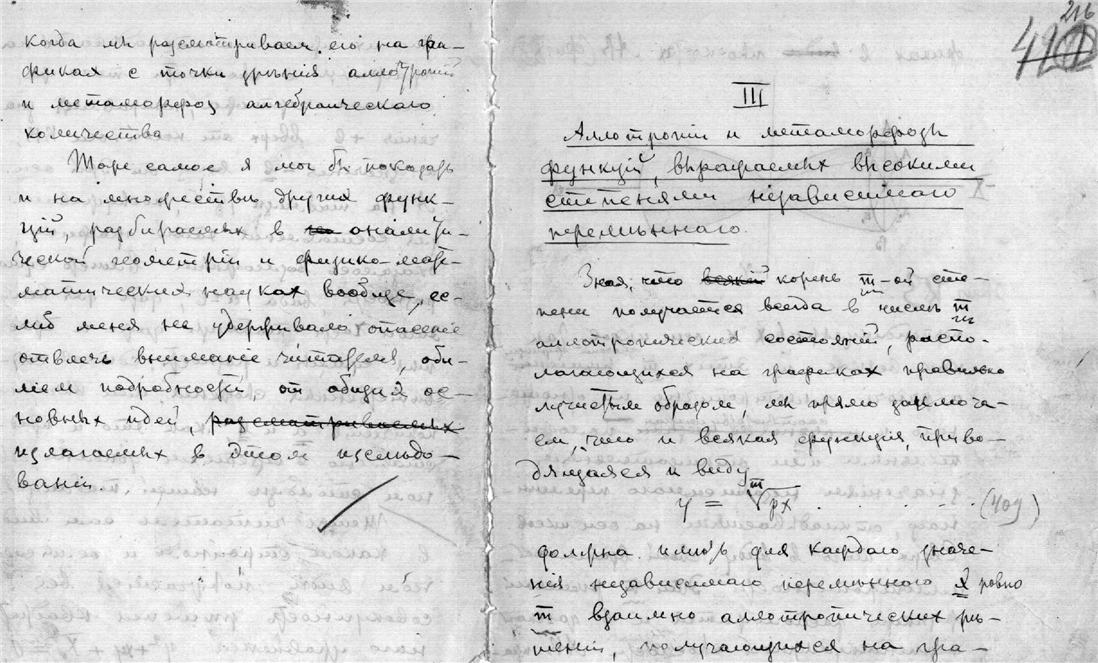 когда мы разсматриваем его на гра-
фиках с точки зрѣнія аллотропій
и метаморфоз алгебраическаго
количества.
Тоже самое я мог бы показать
и на множествѣ других функ-
цій, разбираемых в аналити-
ческой геометріи и физико-мате-
матических науках вообще, ес-
либ меня не удерживало опасеніе
отвлечь вниманіе читателя, оби-
ліем подробностей от общих ос-
новных идей, разсматриваемых
излагаемых в этом изслѣдо-
ваніи.
216
III
Аллотропіи и метаморфозы
функцій, выражаемых высокими
степенями независимаго
перемѣннаго.
Зная, что всякий корень m-ой сте-
пени получается всегда в числѣ m
аллотропических состояній, распо-
лагающихся на графиках правильно
лучистым образом, мы прямо заключа-
ем, что и всякая функція, приво-
дящаяся к виду
y = ᵐ√px . . . . . . (409)
должна имѣть для каждаго значе-
нія независимаго перемѣннаго x ровно
m взаимно аллотропических рѣ-
шеній, получающихся на гра-